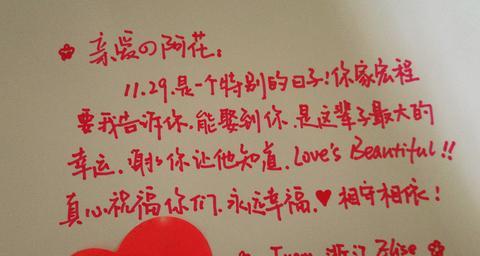 亲爱の阿花：
11.29.是一个特别的日子!你家宏程
要我告诉你.能娶到你.是这辈子最大的
幸运.谢谢你让他知道.Love's Beautiful!!
真心祝福你们.永远幸福.♥相守相依!
From 浙江 Elise